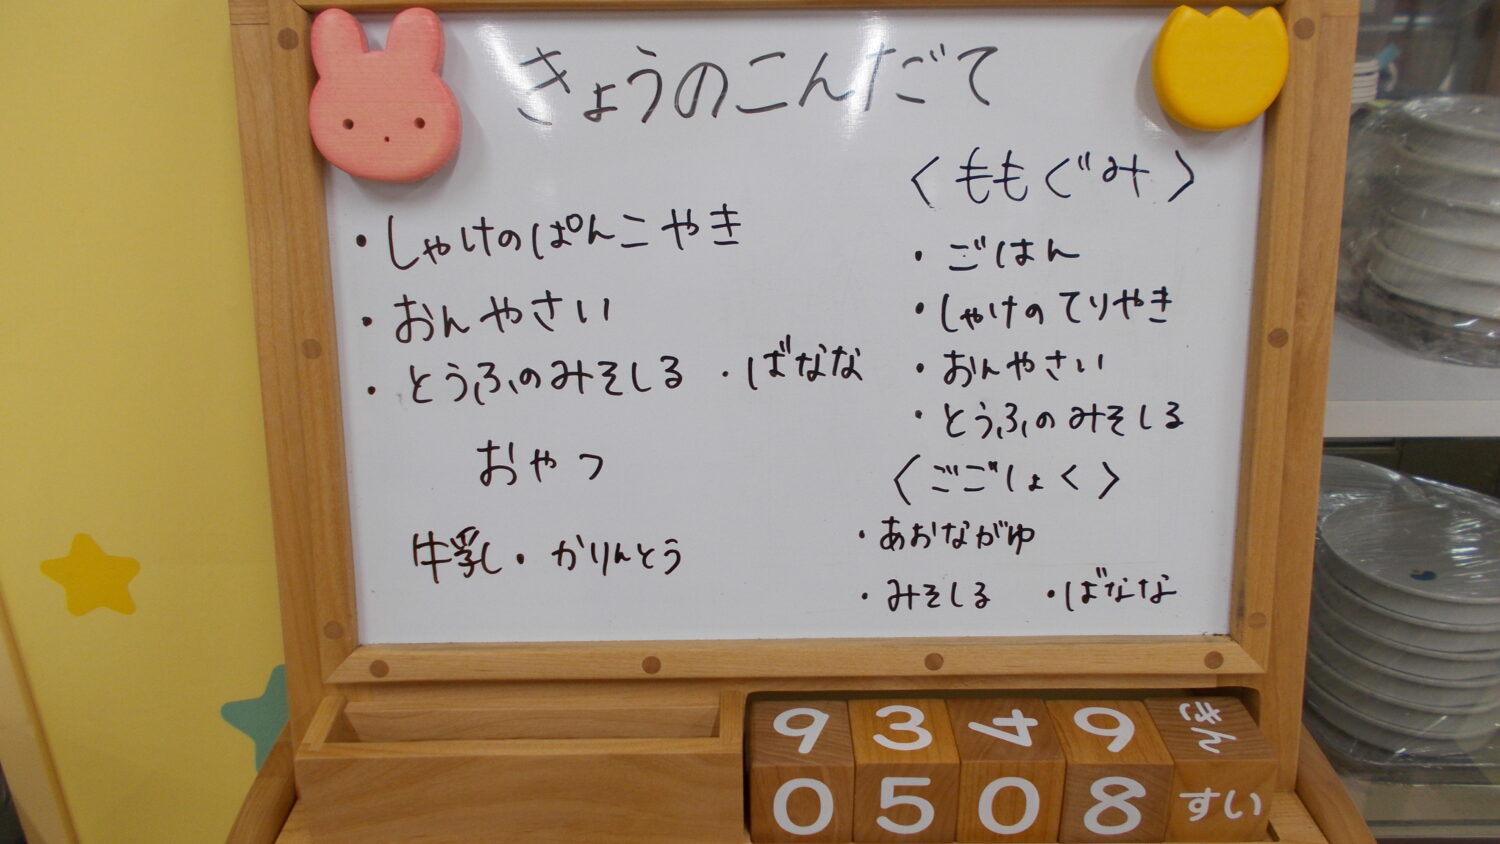 きょうのこんだて
・しゃけのぱんこやき
・おんやさい
・とうふのみそしる ・ばなな
おやつ
牛乳・かりんとう
〈ももぐみ〉
・ごはん
・しゃけのてりやき
・おんやさい
・とうふのみそしる
〈ごごしょく〉
・あおながゆ
・みそしる ・ばなな
9 3 4 9 きん
0 5 0 8 すい